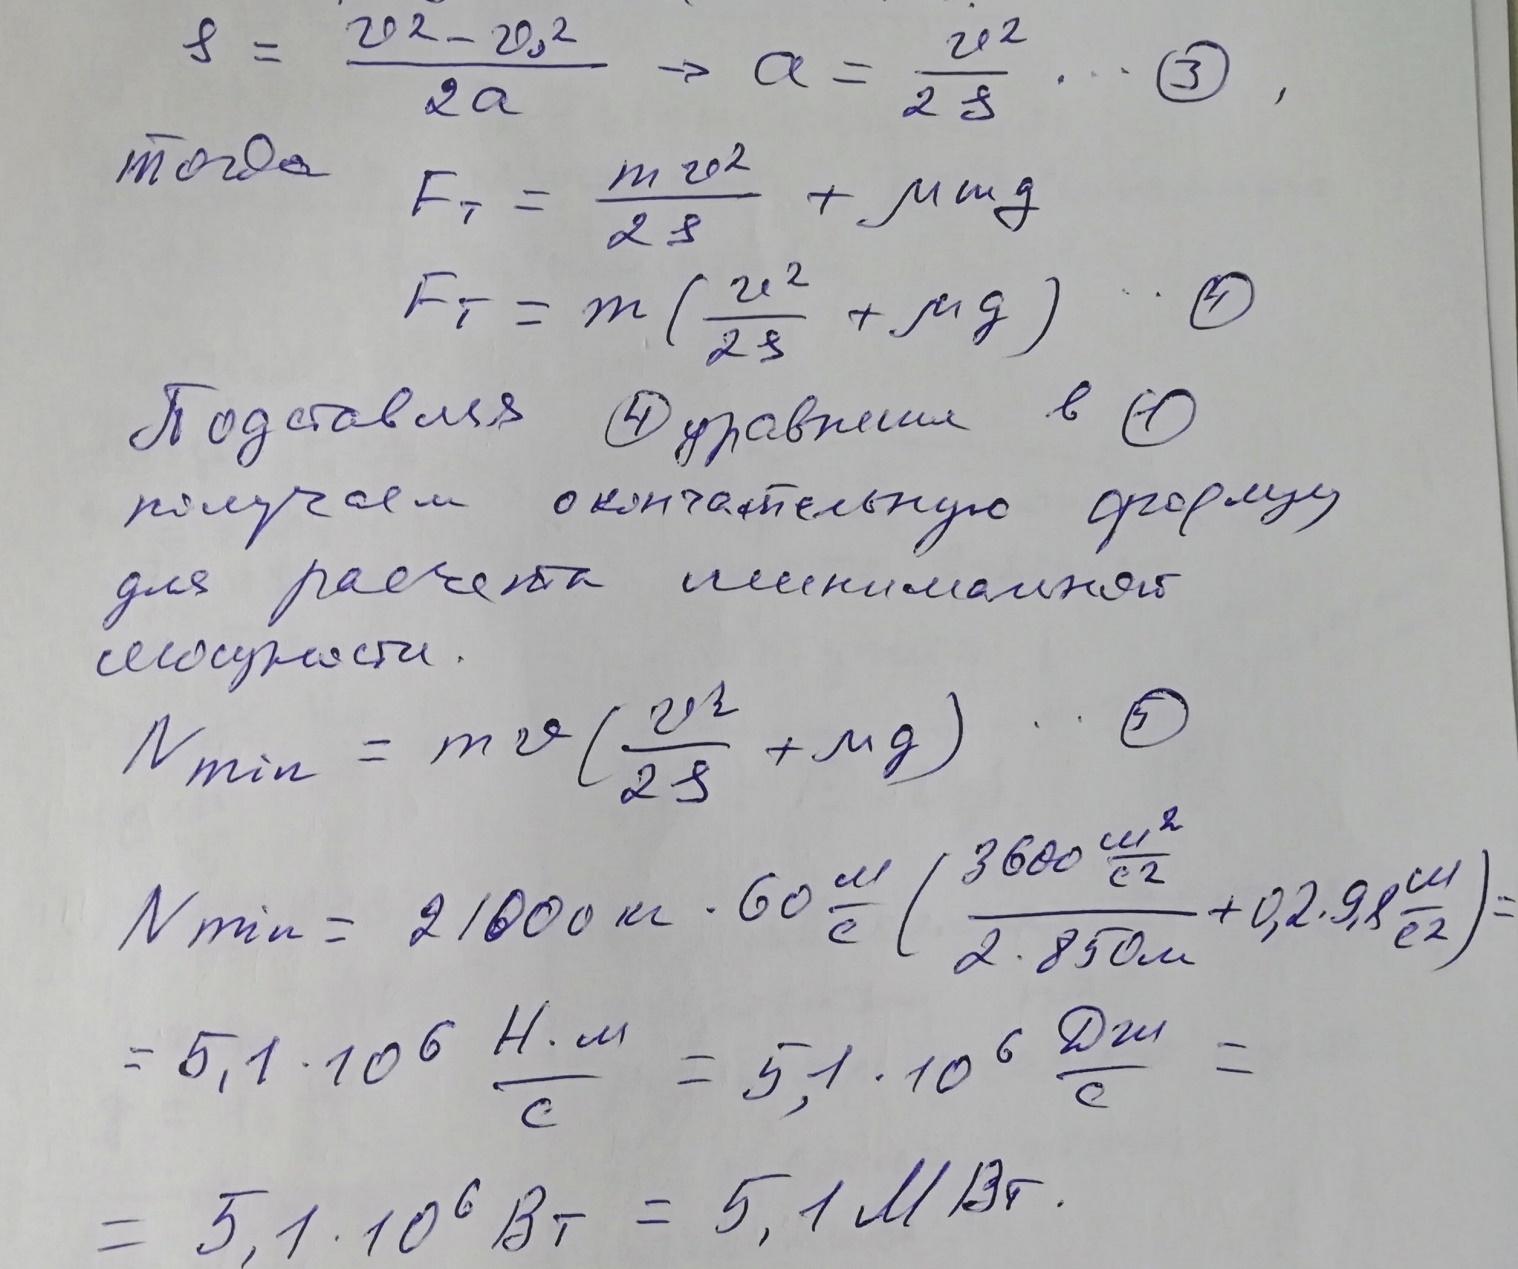 s = (v² – v₀²)/(2a) → a = v²/(2s) ... ③,
тогда
Fт = mv²/(2s) + μmg
Fт = m(v²/(2s) + μg) ... ④
Подставляя ④ уравнения в ①
получаем окончательную формулу
для расчета минимальной
мощности.
Nmin = mv(v²/(2s) + μg) ... ⑤
Nmin = 21000 кг · 60 м/с (3600 м²/с² / (2·850м) + 0,2·9,8 м/с²) =
= 5,1·10⁶ Н·м/с = 5,1·10⁶ Дж/с =
= 5,1·10⁶ Вт = 5,1 МВт.